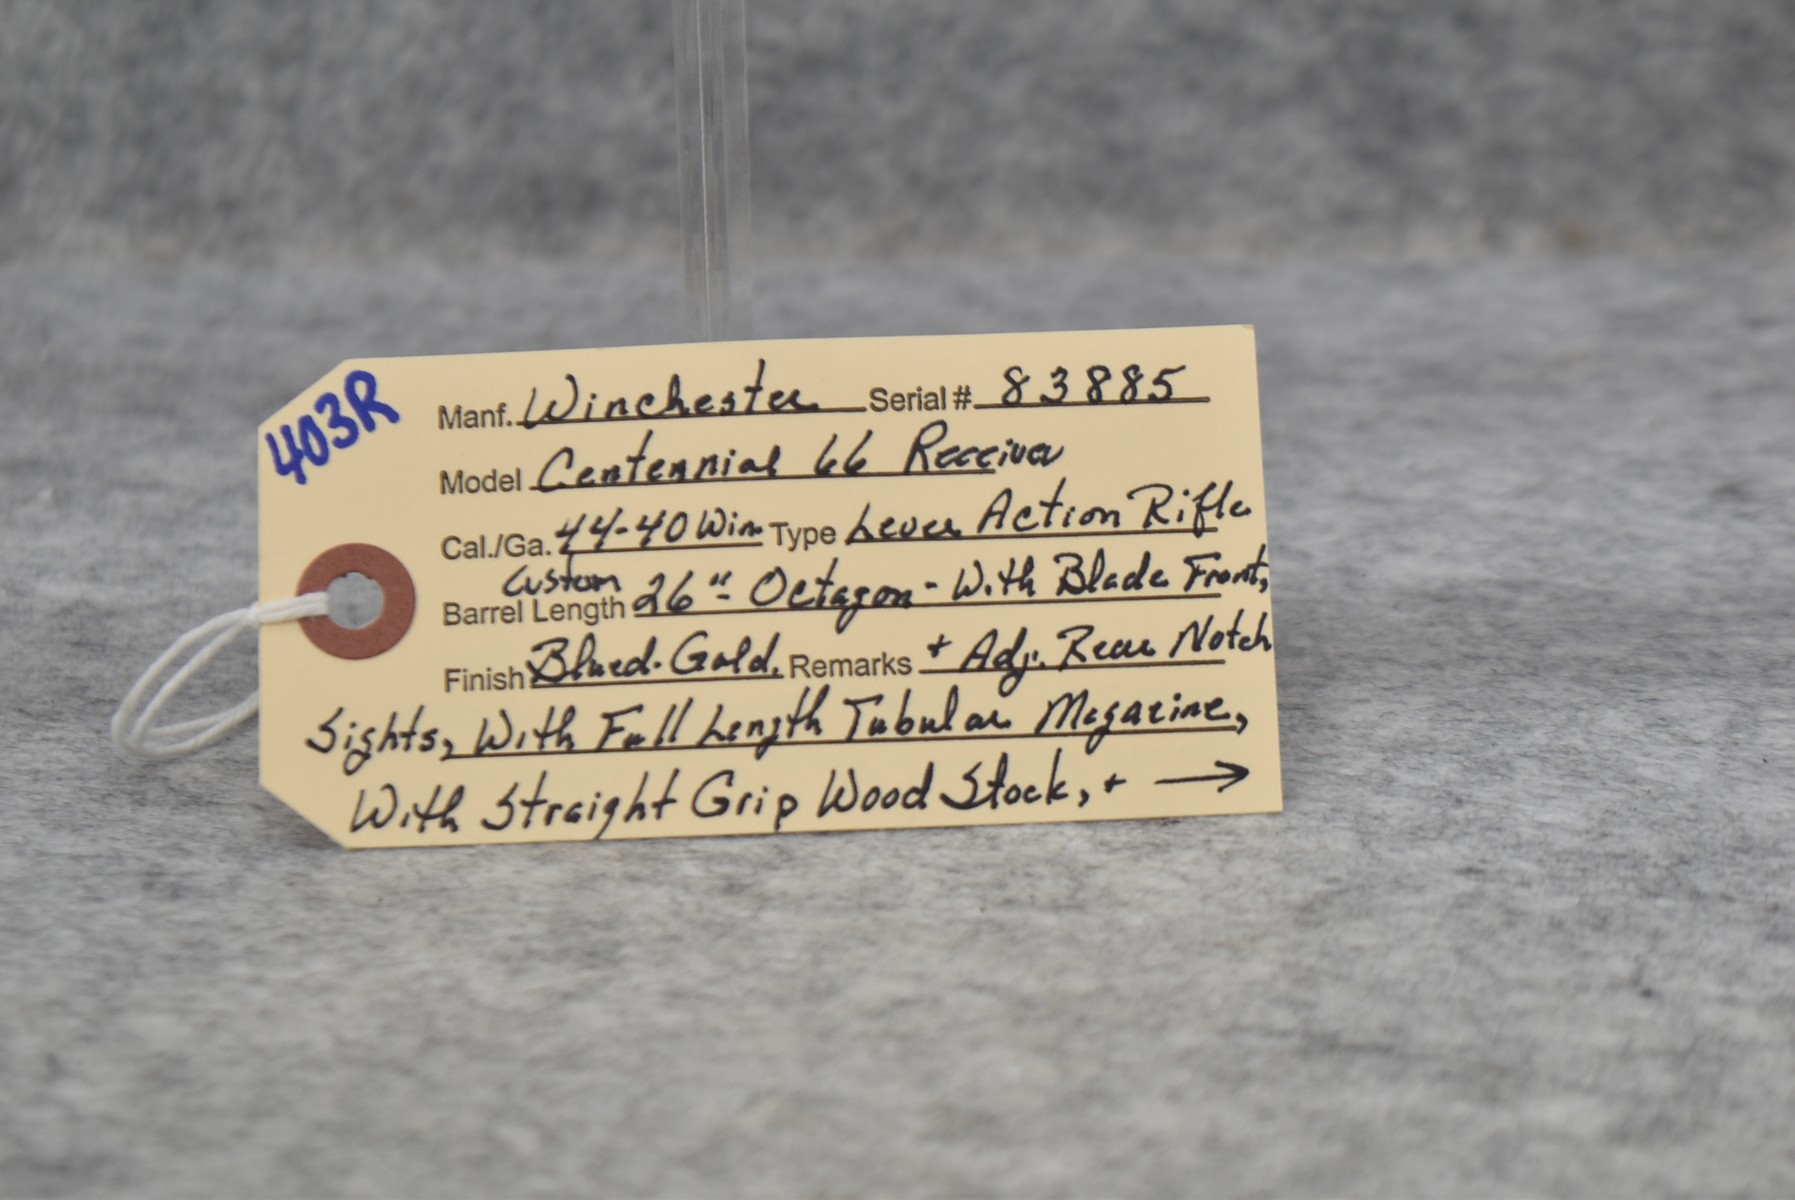 403R
Manf. Winchester Serial # 83885
Model Centennial 66 Receiver
Cal./Ga. 44-40 Win Type Lever Action Rifle
Custom
Barrel Length 26" Octagon - With Blade Front,
Finish Blued-Gold, Remarks + Adj. Rear Notch
Sights, With Full Length Tubular Magazine,
With Straight Grip Wood Stock, + →